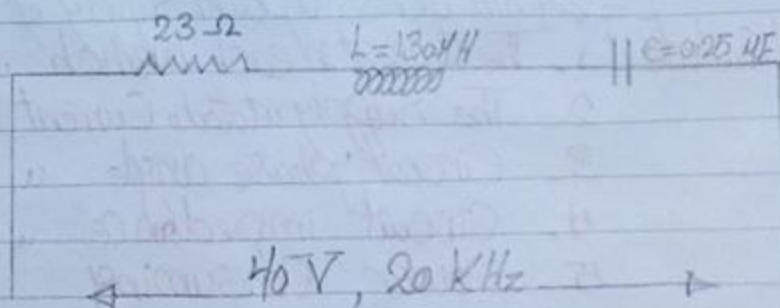 23 Ω
L = 130 μH
C = 0.25 μF
40 V, 20 KHz